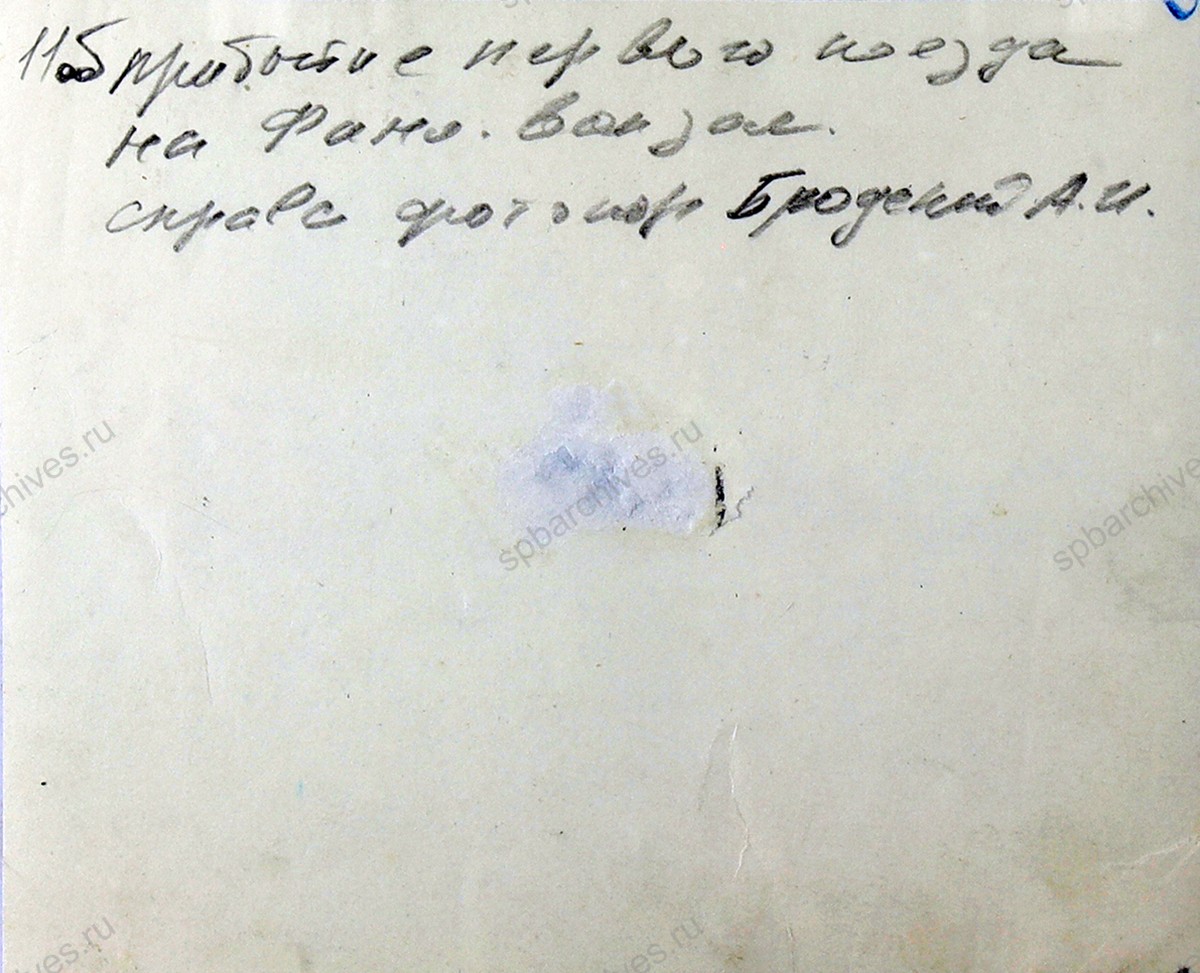 прибытие первого поезда
на Финл. вокзал.
справа фотокор Бродский А.И.
chives.ru
spbarchives.ru
spbarchive
chives.ru
spbarchives.ru